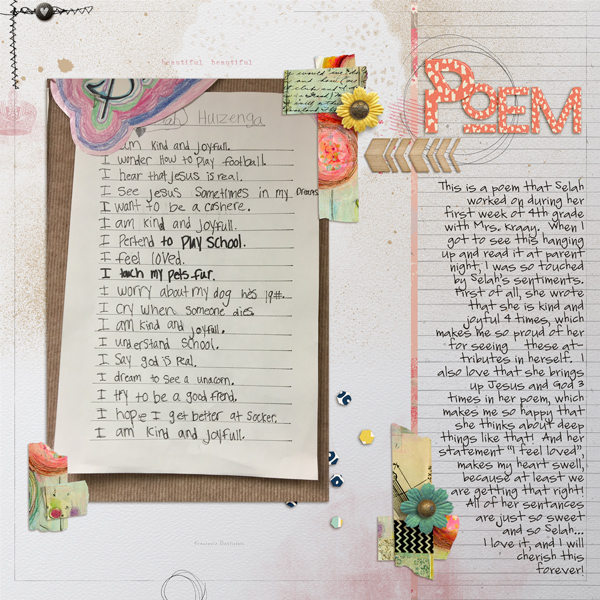 beautiful beautiful
POEM
Selah Huizenga
I am kind and joyfull.
I wonder how to play football
I hear that jesus is real.
I see jesus sometimes in my Dreams
I want to be a cashere.
I am kind and joyfull.
I Pertend to PlAY SChool.
I feel loved.
I touch my pets fur.
I worry about my dog hes 19#.
I cry when someone dies.
I am kind and joyfull.
I understand School.
I Say god is real.
I dream to see a unacorn.
I try to be a good frend.
I hope I get better at socker.
I am kind and joyfull.
This is a poem that Selah
worked on during her
first week of 4th grade
with Mrs. Kragy. When I
got to see this hanging
up and read it at parent
night, I was so touched
by Selah's sentiments.
First of all, she wrote
that she is kind and
joyful 4 times, which
makes me so proud of her
for seeing these at-
tributes in herself. I
also love that she brings
up Jesus and God 3
times in her poem, which
makes me so happy that
she thinks about deep
things like that! And her
statement "I feel loved",
makes my heart swell,
because at least we
are getting that right!
All of her sentances
are just so sweet
and so Selah...
I love it, and I will
cherish this
forever!